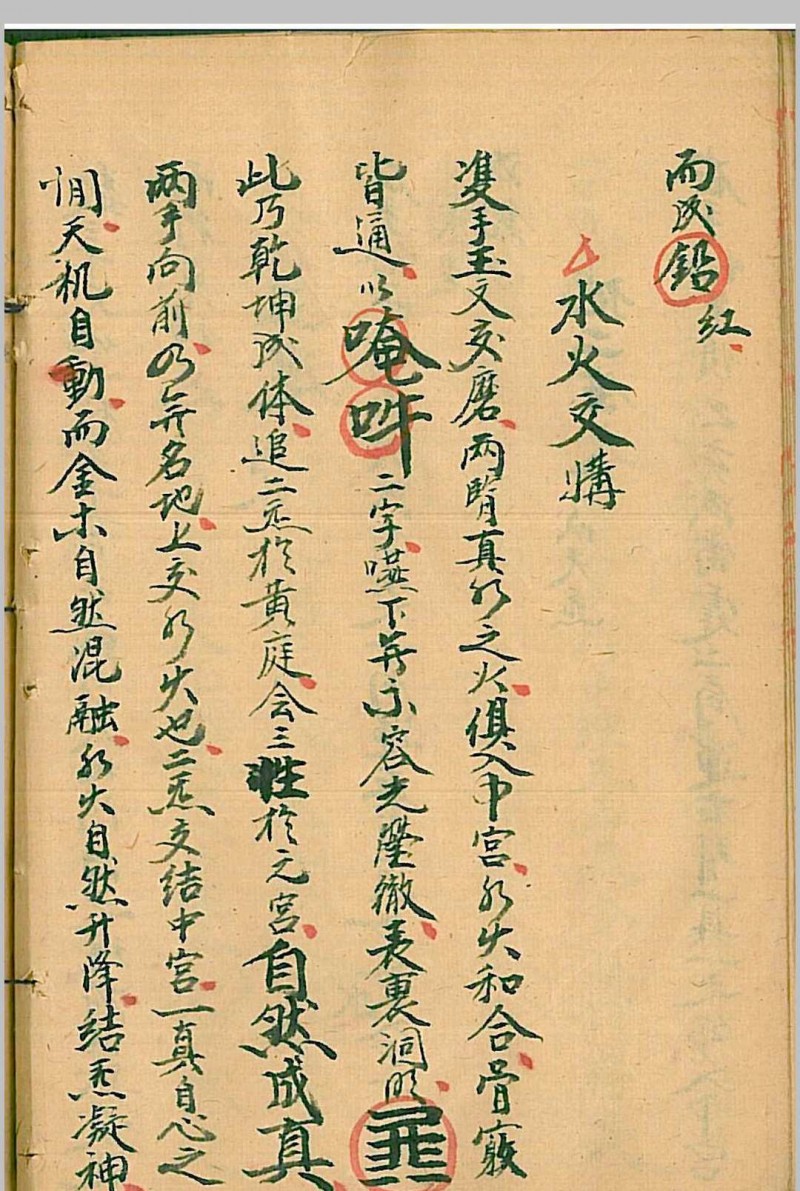 而成鉛紅
水火交媾
雙手玉文交磨兩腎真水之火俱入中宮水火和合骨竅
皆通以唵吽二字嚥下并示容光隆徹表裏洞明
此乃乾坤成体追二炁於黃庭会三性於元宮自然成真
兩手向前乃無名地上交水火也二炁交結中宮一真自心之
間天机自動而金木自然混融水火自然升降結炁凝神